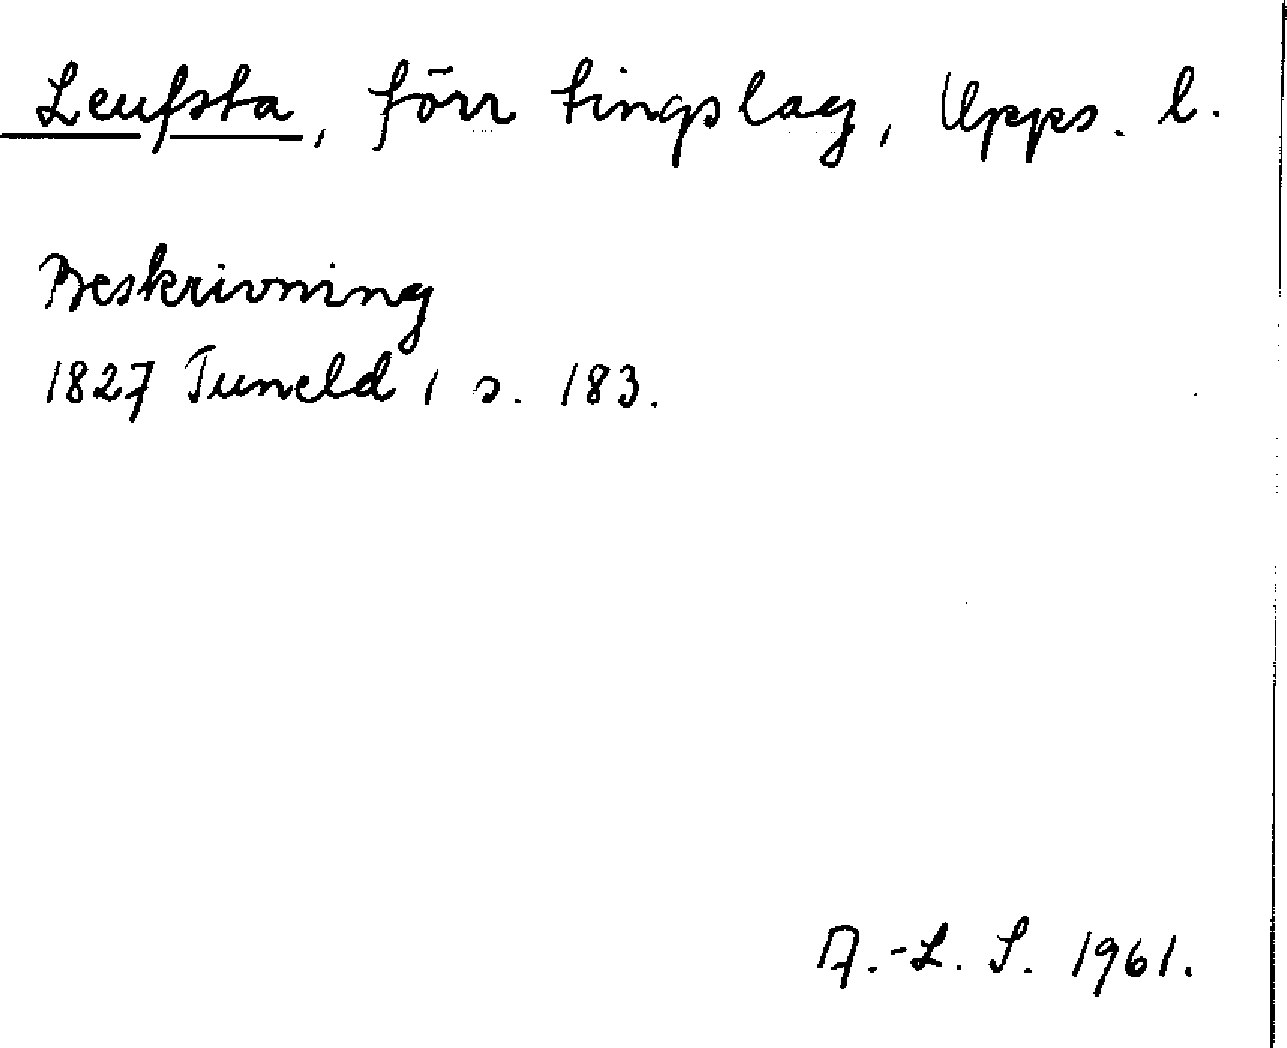 Leufsta, förr tingslag, Upps. l.
Beskrivning
1827 Tuneld 1 s. 183.
A.-L. S. 1961.